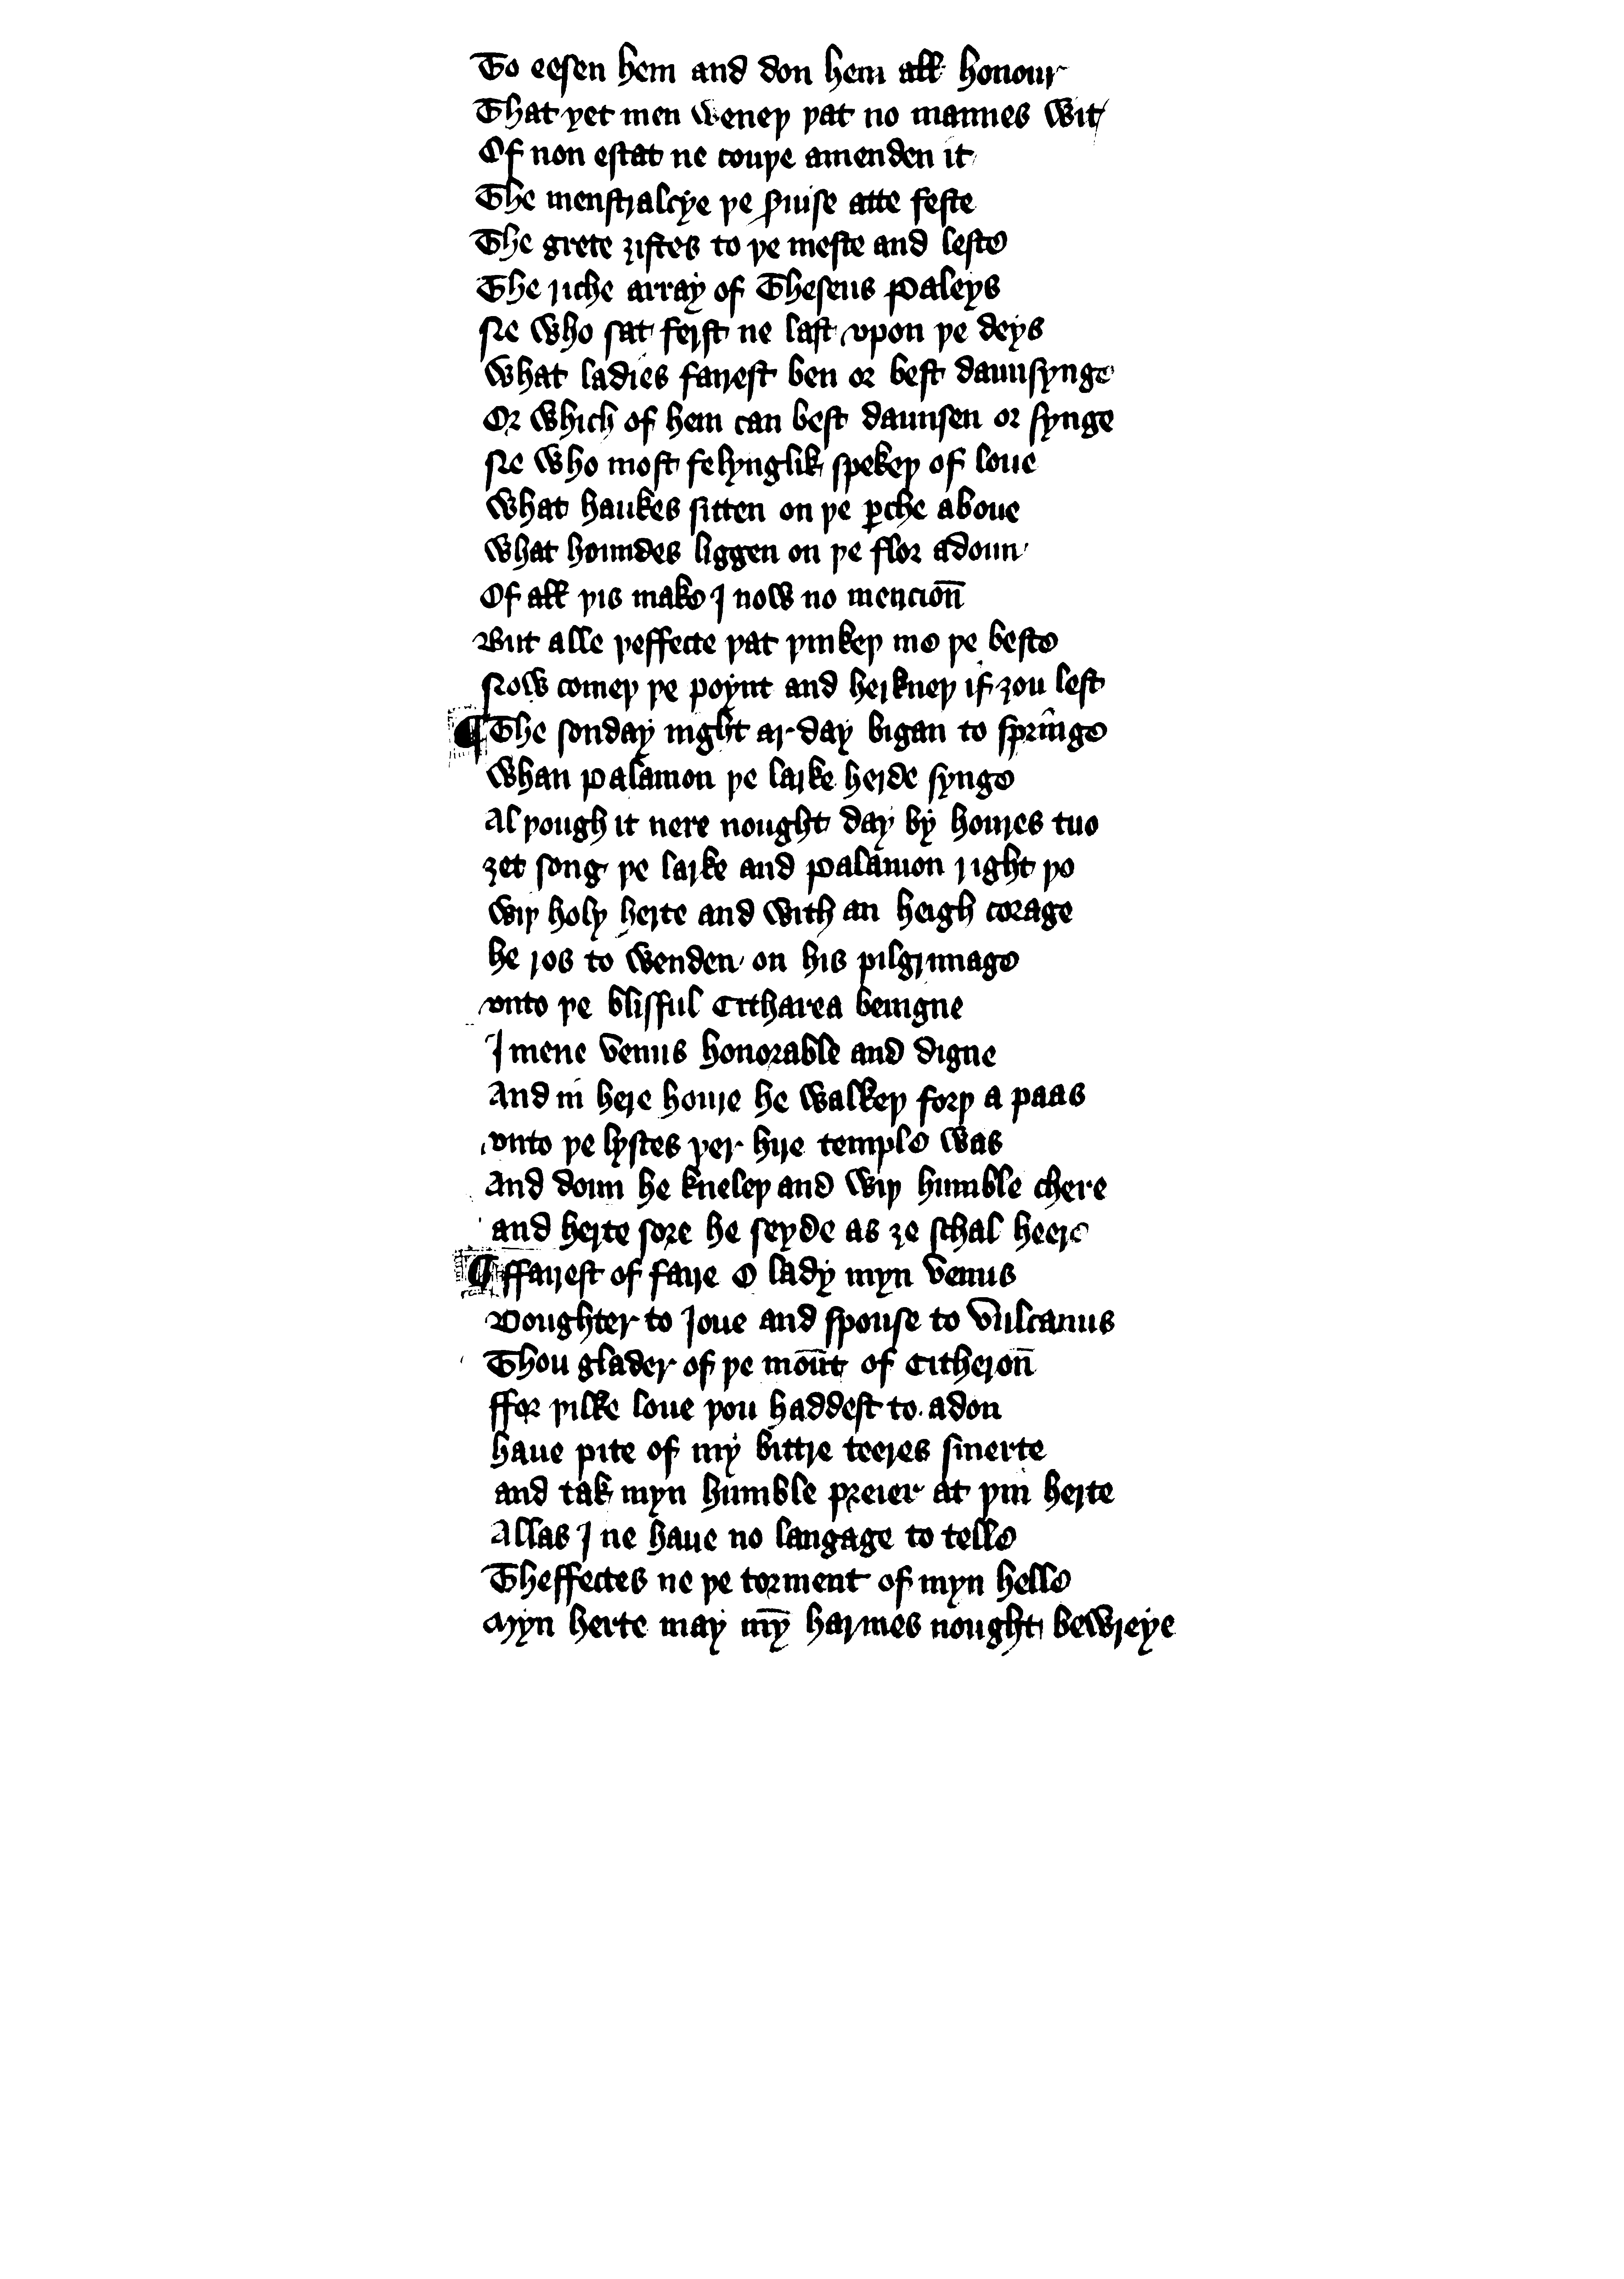 To eesen hem and don hem all honour
That yet men weneþ þat no mannes wit
Of non estat ne couþe amenden it
The menstralcye þe ꝑuise atte feste
The grete ȝiftes to þe meste and leste
The riche array of Theseus paleys
Ne who sat ferst ne last vpon þe deys
What ladies fairest ben or best daunsynge
Or which of hem can best daunsen or synge
Ne who most felynglik spekeþ of loue
What haukes sitten on þe ꝑche aboue
What houndes liggen on þe flor adoun
Of all þis make I now no mencion̄
But alle þeffecte þat þinkeþ me þe beste
Now comeþ þe poynt and herkneþ if ȝou lest
¶ The sonday night ar day bigan to springe
Whan palamon þe larke herde synge
Al þough it nere nought day by houres tuo
ȝet song þe larke and palamon right þo
Wiþ holy herte and with an heigh corage
he ros to wenden on his pilgrimage
vnto þe blisful Citharea benigne
I mene venus honorable and digne
And in here houre he walkeþ forþ a paas
vnto þe lystes þer hire temple was
And doun he kneleþ and wiþ humble chere
and herte sore he seyde as ȝe schal heere
¶ ffairest of faire O lady myn venus
Doughter to Ioue and spouse to vulcanus
Thou glader of þe mou̅t of Citheron̄
ffor þilke loue þou haddest to adon
haue pite of my bittre teeres smerte
and tak myn humble preier at þin herte
Allas I ne haue no langage to telle
Theffectes ne þe torment of myn helle
Myn herte may my̅ harmes nought bewreye